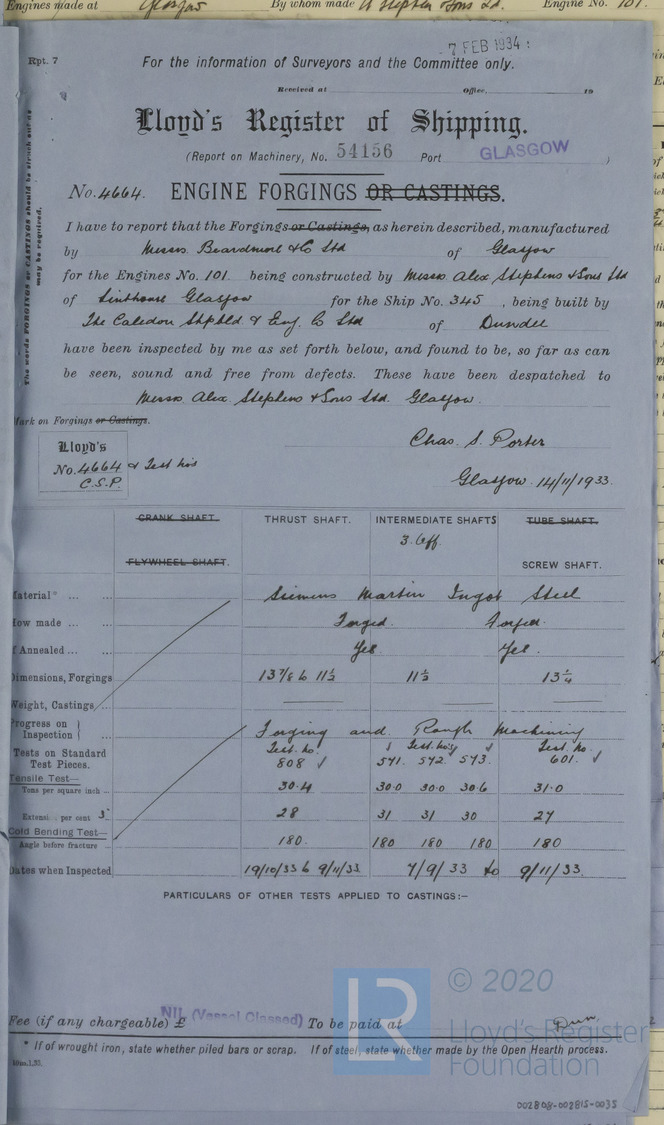 Engines made at Glasgow By whom made A Stephen & Sons Ld. Engine No. 101.
7 FEB 1934
Rpt. 7
For the information of Surveyors and the Committee only.
Received at Office, 19
Lloyd's Register of Shipping.
(Report on Machinery, No. 54156 Port GLASGOW )
No. 4664. ENGINE FORGINGS OR CASTINGS.
The words FORGINGS or CASTINGS should be struck out as may be required.
I have to report that the Forgings or Castings, as herein described, manufactured
by Messrs. Beardmore & Co Ltd of Glasgow
for the Engines No. 101 being constructed by Messrs Alex Stephens & Sons Ltd
of Linthouse Glasgow for the Ship No. 345, being built by
The Caledon Shpbld & Eng. Co Ltd of Dundee
have been inspected by me as set forth below, and found to be, so far as can
be seen, sound and free from defects. These have been despatched to
Messrs. Alex. Stephens & Sons Ltd. Glasgow.
Mark on Forgings or Castings.
Lloyd's
No. 4664 & Test Nos
C.S.P.
Chas. S. Porter
Glasgow 14/11/1933.
CRANK SHAFT. THRUST SHAFT. INTERMEDIATE SHAFTS TUBE SHAFT.
3. Off.
FLYWHEEL SHAFT. SCREW SHAFT.
Material* ... ... Siemens Martin Ingot Steel
How made ... ... Forged. Forged.
If Annealed ... ... Yes Yes.
Dimensions, Forgings 13 7/8 & 11 1/2 11 1/2 13 1/4
Weight, Castings
Progress on Inspection } Forging and Rough Machining
Tests on Standard Test Pieces. Test. No. 808 Test. Nos 571. 572. 573. Test. No. 601.
Tensile Test—
Tons per square inch ... 30.4 30.0 30.0 30.6 31.0
Extensn. per cent 3" 28 31 31 30 27
Cold Bending Test—
Angle before fracture 180. 180 180 180 180
Dates when Inspected 19/10/33 & 9/11/33. 7/9/33 to 9/11/33.
PARTICULARS OF OTHER TESTS APPLIED TO CASTINGS:-
© 2020
LR
Lloyd's Register
Foundation
Fee (if any chargeable) £ NIL (Vessel Classed) To be paid at Dun.
* If of wrought iron, state whether piled bars or scrap. If of steel, state whether made by the Open Hearth process.
002808-002815-0035